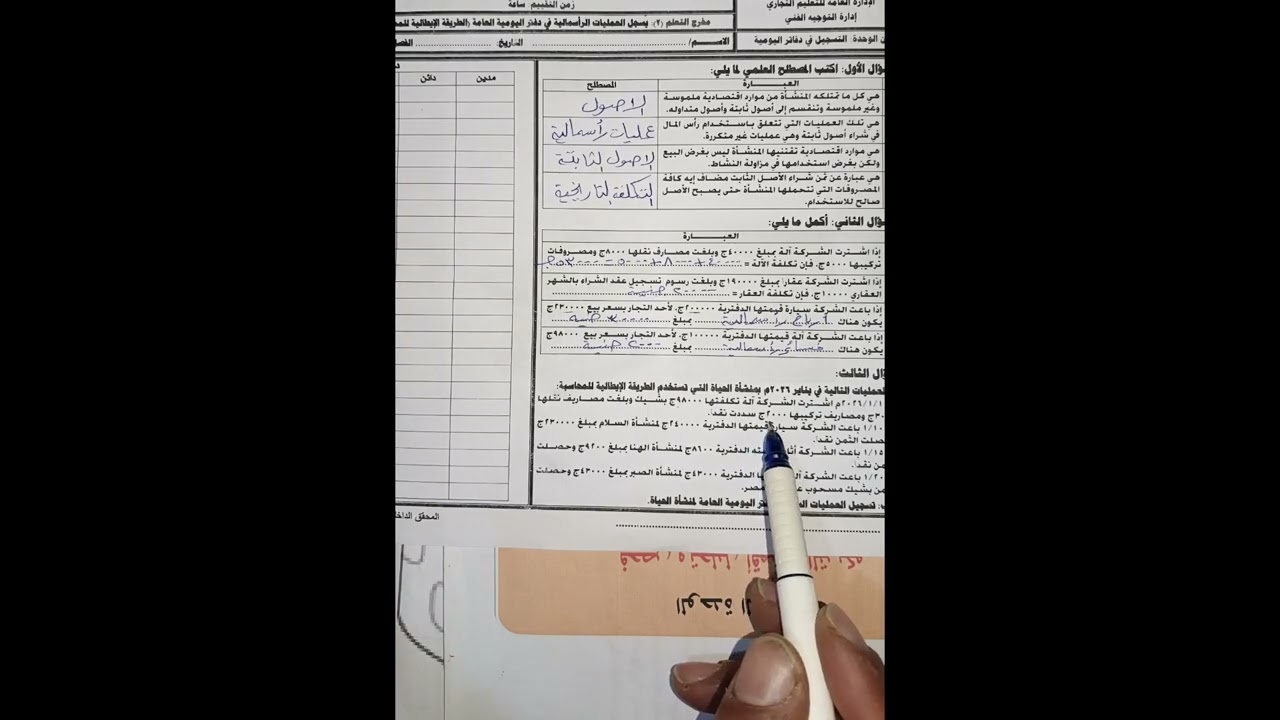 الإدارة العامة للتعليم التجاري
إدارة التوجيه الفني
زمن التقييم: ساعة
مخرج التعلم (٢): يسجل العمليات الرأسمالية في دفتر اليومية العامة (الطريقة الإيطالية
الوحدة: التسجيل في دفاتر اليومية
الاسم/ التاريخ:
السؤال الأول: اكتب المصطلح العلمي لما يلي:
العبارة المصطلح
هي كل ما تمتلكه المنشأة من موارد اقتصادية ملموسة
وغير ملموسة وتنقسم إلى أصول ثابتة وأصول متداوله.
الاصول
هي تلك العمليات التي تتعلق باستخدام رأس المال
في شراء أصول ثابتة وهي عمليات غير متكررة.
عمليات رأسمالية
هي موارد اقتصادية تقتنيها المنشأة ليس بغرض البيع
ولكن بغرض استخدامها في مزاولة النشاط.
الاصول الثابتة
هي عبارة عن ثمن شراء الأصل الثابت مضاف إيه كافة
المصروفات التي تتحملها المنشأة حتى يصبح الأصل
صالح للاستخدام.
التكلفة التاريخية
السؤال الثاني: أكمل ما يلي:
العبارة
إذا اشترت الشركة آلة بمبلغ ٤٠٠٠٠ج وبلغت مصارف نقلها ٨٠٠٠ج ومصروفات
تركيبها ٥٠٠٠ج. فإن تكلفة الآلة = ٤٠٠٠٠ + ٨٠٠٠ + ٥٠٠٠ = ٥٣٠٠٠ج
إذا اشترت الشركة عقاراً بمبلغ ١٩٠٠٠٠ج وبلغت رسوم تسجيل عقد الشراء بالشهر
العقاري ١٠٠٠٠ج. فإن تكلفة العقار = ٢٠٠٠٠٠ جنيه
إذا باعت الشركة سيارة قيمتها الدفترية ٢٠٠٠٠٠ج. لأحد التجار بسعر بيع ٢٣٠٠٠٠ج
يكون هناك أرباح رأسمالية بمبلغ ٣٠٠٠٠ جنيه
إذا باعت الشركة آلة قيمتها الدفترية ١٠٠٠٠٠ج. لأحد التجار بسعر بيع ٩٨٠٠٠ج
يكون هناك خسائر رأسمالية بمبلغ ٢٠٠٠ جنيه
الثالث:
العمليات التالية في يناير ٢٠٢٦م بمنشأة الحياة التي تستخدم الطريقة الإيطالية للمحاسبة:
٢٠٢٦/١/١م اشترت الشركة آلة تكلفتها ٩٨٠٠٠ج بشيك وبلغت مصاريف نقلها
ج ومصاريف تركيبها ٢٠٠٠ج سددت نقداً.
١/١٠ باعت الشركة سيارة قيمتها الدفترية ٢٤٠٠٠٠ج لمنشأة السلام بمبلغ ٢٣٠٠٠٠ج
الثمن نقداً.
١/١٥ باعت الشركة الدفترية ٨٦٠٠ج لمنشأة الهنا بمبلغ ٩٢٠٠ج وحصلت
نقداً.
١/٢٠ باعت الشركة الدفترية ٤٣٠٠٠ج لمنشأة الصبر بمبلغ ٤٣٠٠٠ج وحصلت
بشيك مسحوب مصر.
تسجيل العمليات دفتر اليومية العامة لمنشأة الحياة.
مدين دائن
المحقق
الوحدة